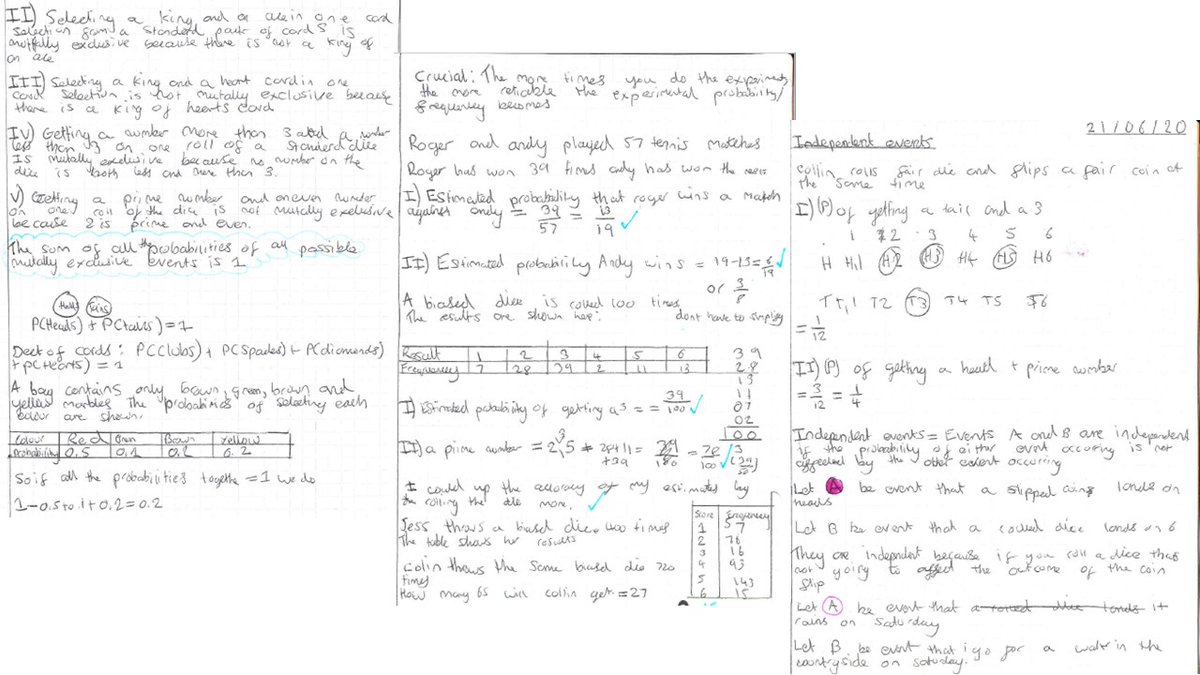 II) Selecting a king and a ace in one card
selection from a standard pack of cards is
mutfally exclusive because there is not a king of
an ace
III) Selecting a king and a heart card in one
card selection is not mutally exclusive because
there is a king of hearts card
IV) Getting a number more than 3 and a number
less than 3 on one roll of a standerd dice
Is mutally exclusive because no number on the
dice is both less and more than 3.
V) Getting a prime number and an even number
on one roll of the dice is not mutally exclusive
because 2 is prime and even.
The sum of all the probabilities of all possible
mutally exclusive events is 1
Heads Tails
P(Heads) + P(tails) = 1
Deck of cards: P(Clubs) + P(Spades) + P(diamends)
+ p(Hearts) = 1
A bag contains only brown, green, brown and
yellow marbles The probabilities of selecting each
colour are shown.
Colour Red Green Brown Yellow
probability 0.5 0.1 0.2 0.2
So if all the probabilities togethe = 1 we do
1-0.5+0.1+0.2=0.2
Crucial: The more times you do the experiment,
the more reliable the experimental probability/
frequency becomes
Roger and andy played 57 tennis matches
Roger has won 39 times andy has won the rest
I) Estimated probability that roger wins a match
against andy = 39/57 = 13/19 ✓
II) Estimated probability Andy wins = 19-13=6/19 ✓
or 3/8
dont have to simplify
A biased dice is rolled 100 times
The results are shown her:
Result 1 2 3 4 5 6
Frequency 7 28 39 2 11 13
39
28
13
11
07
02
100
I) Estimated probability of getting a 3 = = 39/100 ✓
II) a prime number = 2,3,5 = 28+11 = = 78/100 ✓
+39
I could up the accuracy of my estimates by
the rolling the die more. ✓
Jess throws a biased dice 400 times
The table shows her results
Score Frequency
1 57
2 76
3 16
4 93
5 143
6 15
Colin throws the same biased die 720
times
How many 6s will collin get = 27
21/06/20
Independent events
Collin rolls fair die and flips a fair coin at
the same time
I) (P) of getting a tail and a 3
1 2 3 4 5 6
H H,1 H2 H3 H4 H5 H6
T T,1 T2 T3 T4 T5 T6
= 1/12
II) (P) of getting a head + prime number
= 3/12 = 1/4
Independent events = Events A and B are independent
if the probability of either event occuring is not
affected by the other event occuring
Let A be event that a flipped coin lands on
heads
Let B be event that a rolled dice lands on 6
They are independent because if you roll a dice thats
not going to affect the outcome of the coin
flip
Let A be event that a rolled dice lands it
rains on Saturday
Let B be event that i go for a walk in the
countryside on saturday.